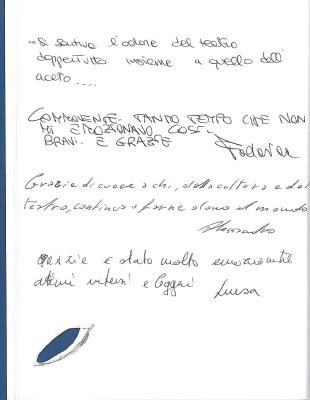 ...Si sentiva l'odore del teatro
dappertutto insieme a quello dell'
aceto....
COMMOVENTE. TANTO TEMPO CHE NON
MI EMOZIONAVO COSÌ.
BRAVI. E GRAZIE
Federica
Grazie di cuore a chi, della cultura e del
teatro, continua a farne dono al mondo
Alessandro
GRAZIE è stato molto emozionante
attimi intensi e leggeri Luisa